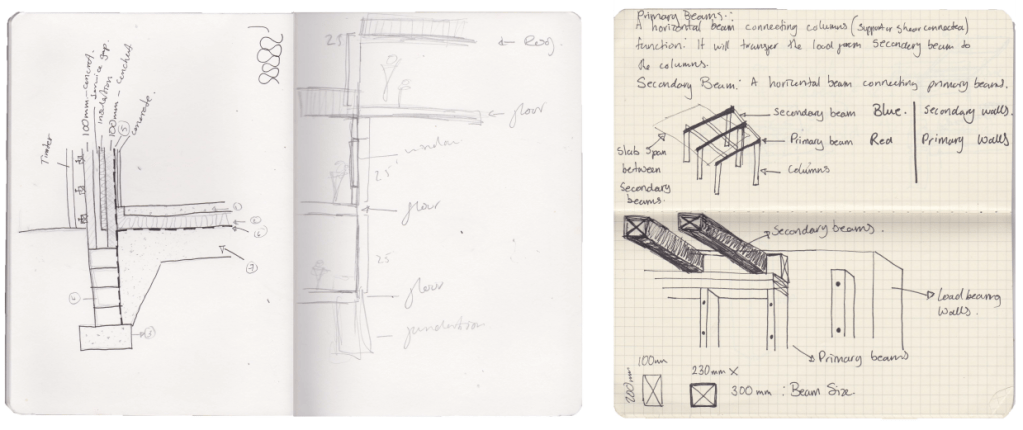 Timber
100mm-concret.
Service gap.
insulation
100mm - concret
5
concrete.
25
Roof.
floor
window
25
floor
25
floor
Primary Beams:
A horizontal beam connecting columns (support or shear connected)
function: It will transfer the load from Secondary beam to
the columns.
Secondary Beam: A horizontal beam connecting primary beams.
Secondary beam Blue. Secondary walls.
Primary beam Red Primary Walls
Columns
Slab Span
between
Secondary
beams.
Secondary beams.
Load bearing
walls.
Primary beams
100mm
200mm
230mm x
300mm : Beam Size